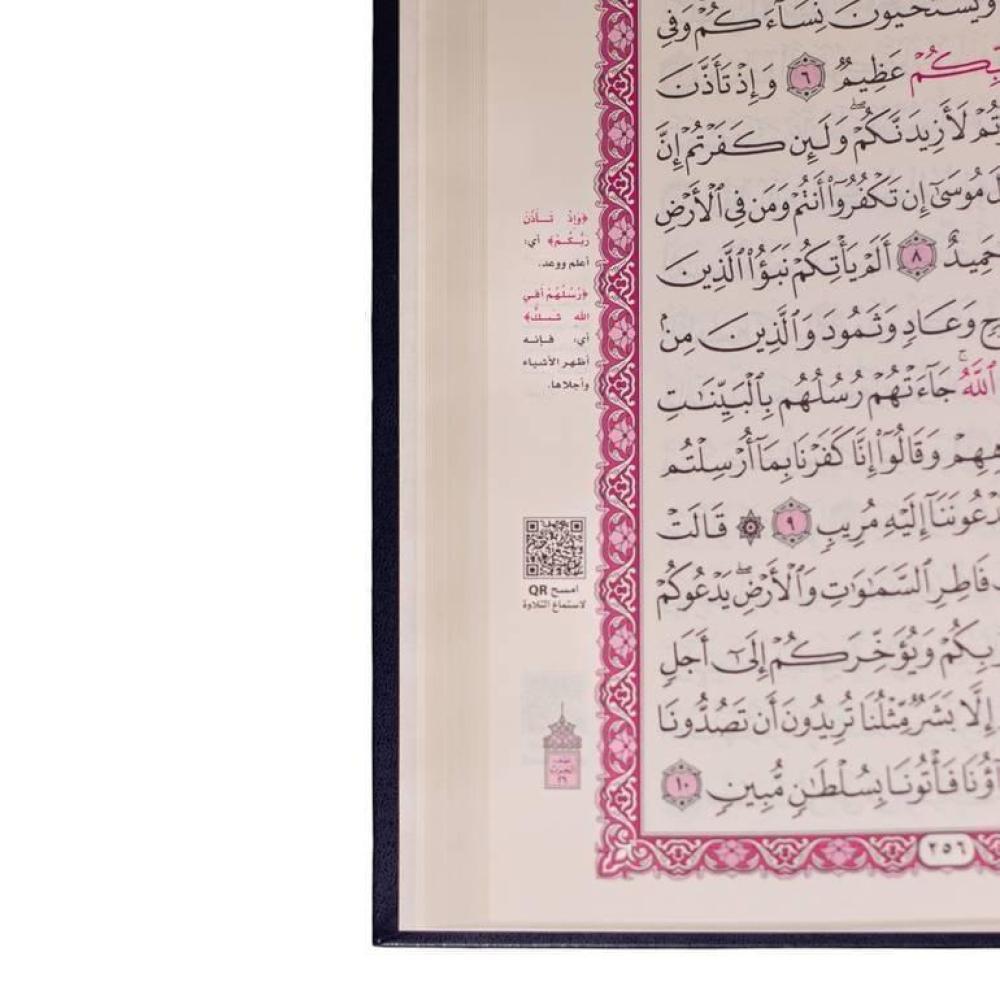 وَيَسْتَحْيُونَ نِسَآءَكُمْ وَفِى
عَظِيمٌ ٦ وَإِذْ تَأَذَّنَ
لَأَزِيدَنَّكُمْ ۖ وَلَئِن كَفَرْتُمْ إِنَّ
مُوسَىٰٓ إِن تَكْفُرُوٓا۟ أَنتُمْ وَمَن فِى ٱلْأَرْضِ
حَمِيدٌ ٨ أَلَمْ يَأْتِكُمْ نَبَؤُا۟ ٱلَّذِينَ
وَعَادٍ وَثَمُودَ وَٱلَّذِينَ مِنۢ
ٱللَّهُ ۚ جَآءَتْهُمْ رُسُلُهُم بِٱلْبَيِّنَـٰتِ
وَقَالُوٓا۟ إِنَّا كَفَرْنَا بِمَآ أُرْسِلْتُم
إِلَيْهِ مُرِيبٍ ٩ ۞ قَالَتْ
فَاطِرِ ٱلسَّمَـٰوَٰتِ وَٱلْأَرْضِ ۖ يَدْعُوكُمْ
وَيُؤَخِّرَكُمْ إِلَىٰٓ أَجَلٍ
إِلَّا بَشَرٌ مِّثْلُنَا تُرِيدُونَ أَن تَصُدُّونَا
فَأْتُونَا بِسُلْطَـٰنٍ مُّبِينٍ ١٠
٢٥٦
﴿وَإِذْ تَـأَذَّنَ
رَبُّـكُـمْ﴾ أي:
أعلم ووعد.
﴿رُسُلُهُمْ أَفِي
اللهِ شَـكٌّ﴾
أي: فـإنـه
أظهر الأشياء
وأجلاها.
امسح QR
لاستماع التلاوة
نصف
الحزب
٢٦